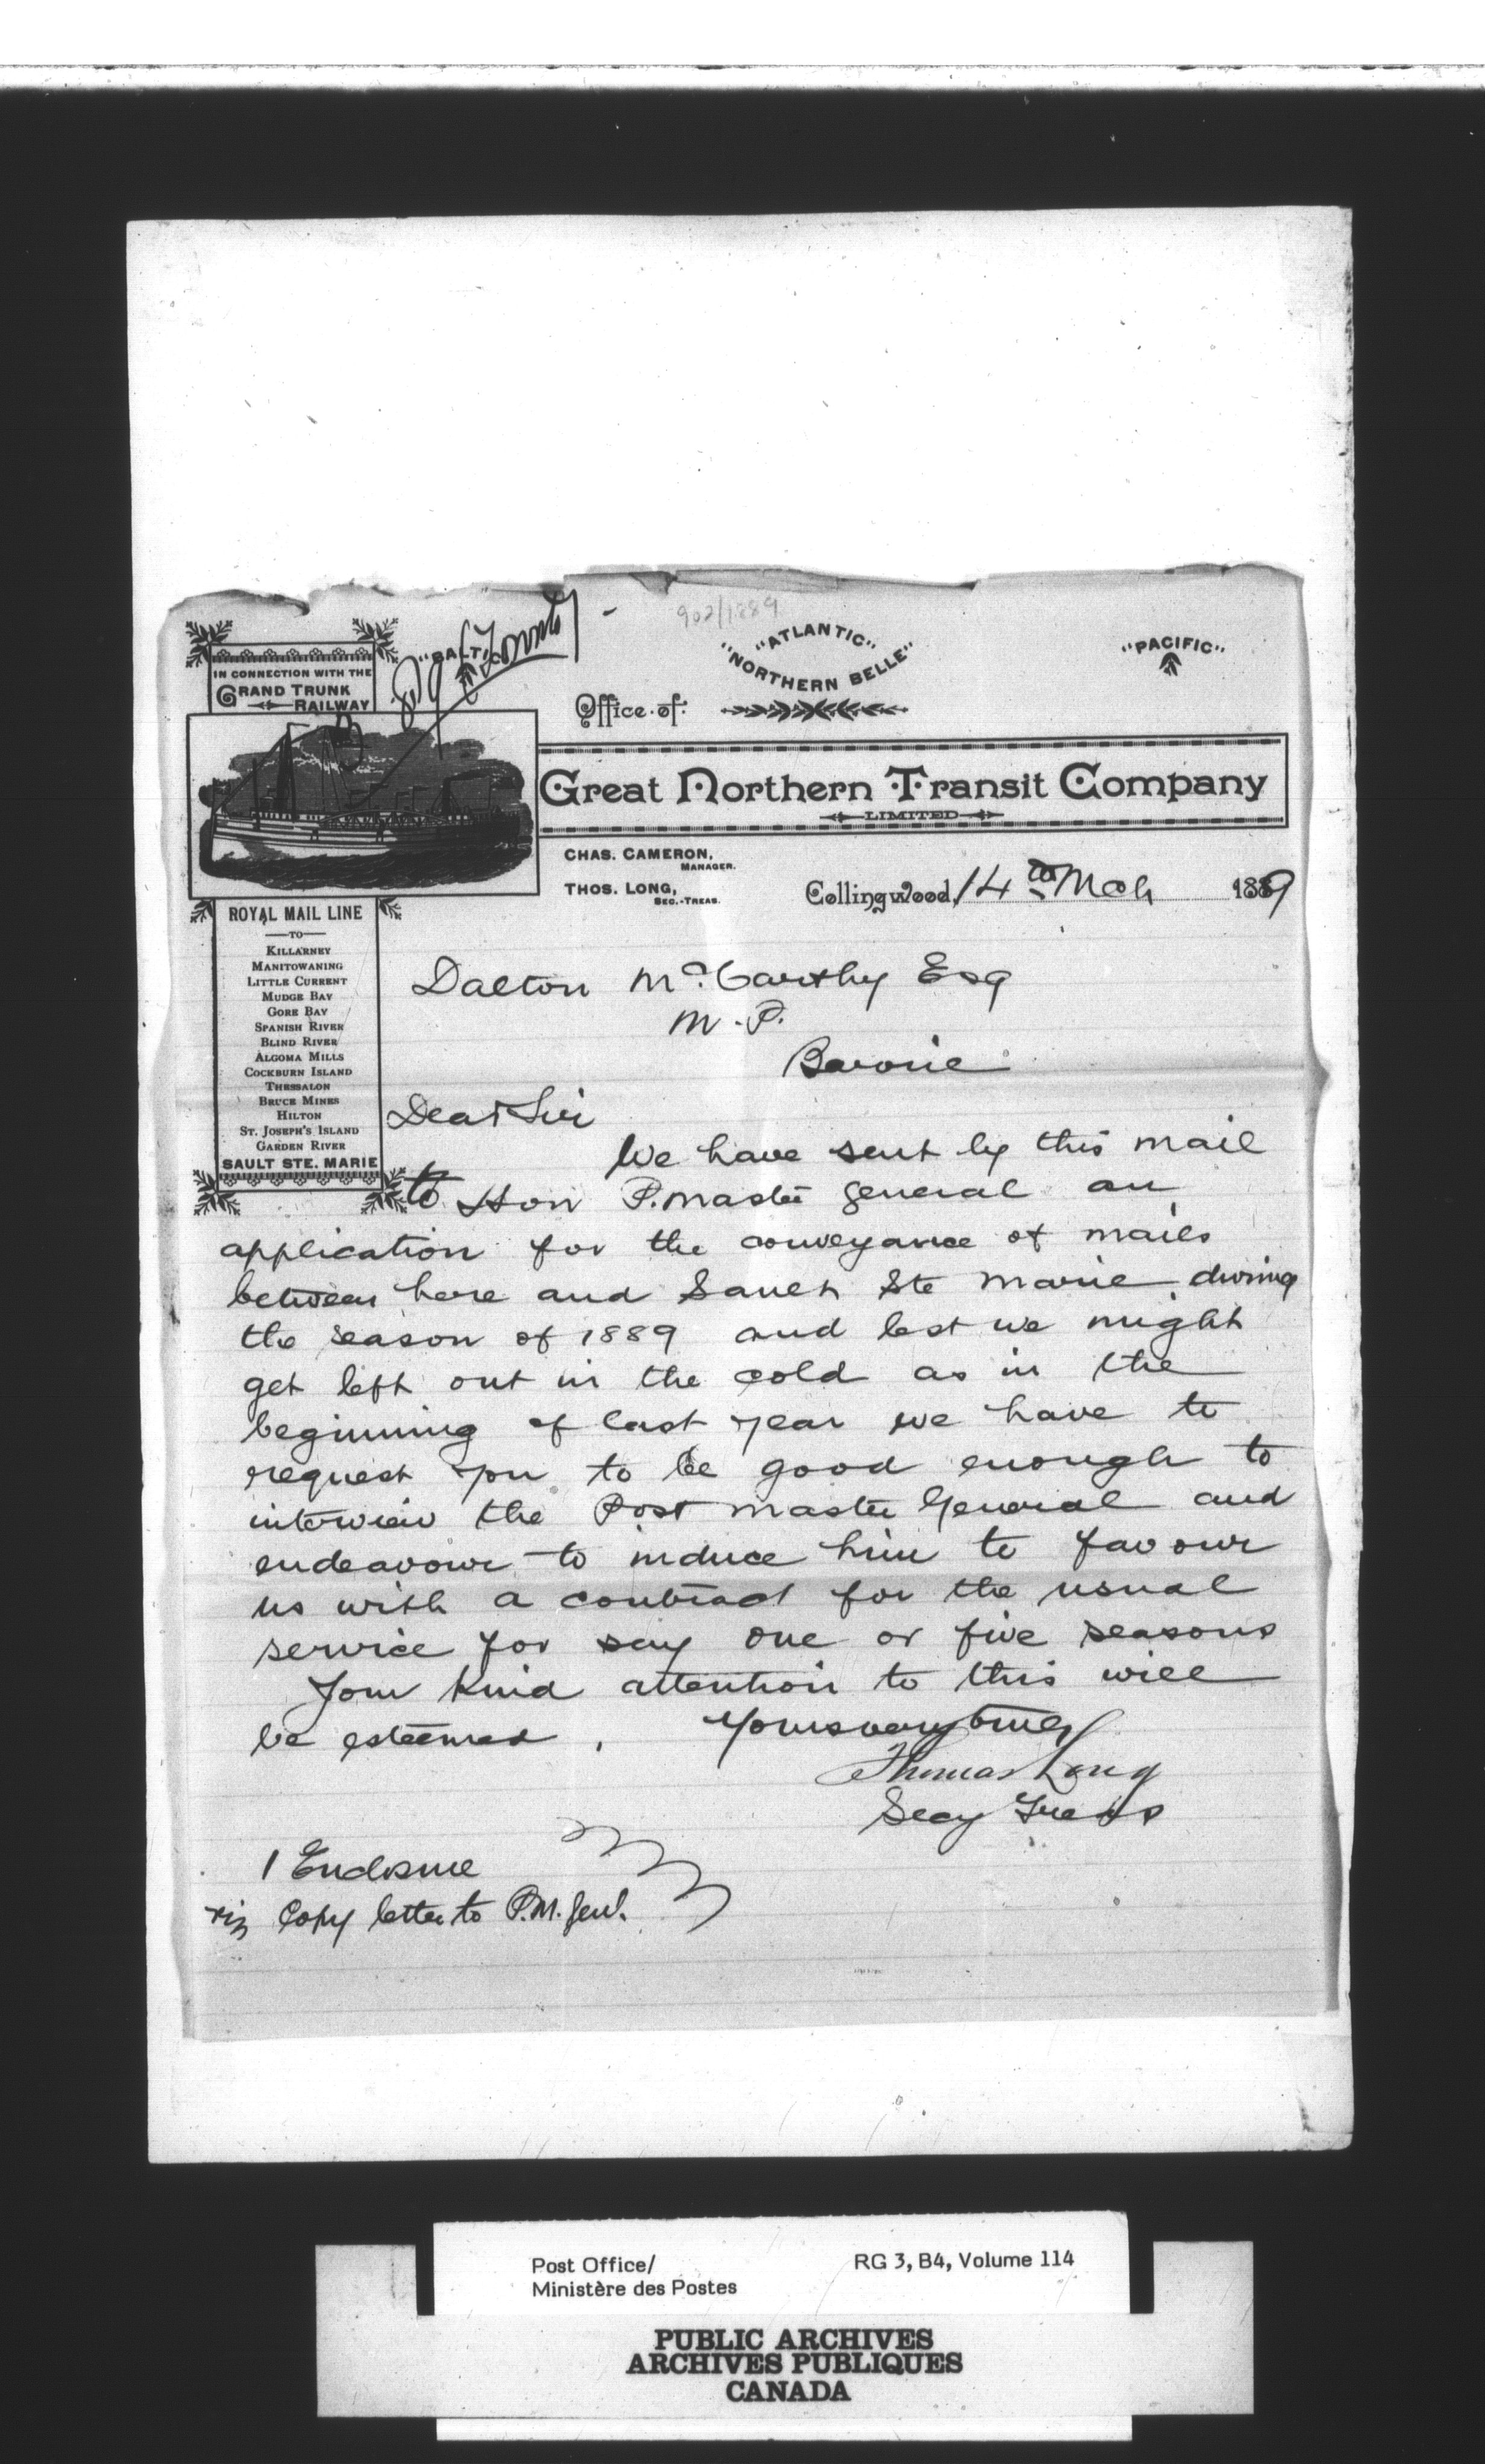 902/1889
"BALTIC"
"ATLANTIC"
"NORTHERN BELLE"
"PACIFIC"
IN CONNECTION WITH THE
GRAND TRUNK
RAILWAY
Office of
Great Northern Transit Company
LIMITED
CHAS. CAMERON,
MANAGER.
THOS. LONG,
SEC.-TREAS.
Collingwood, 14th Mch 1889
ROYAL MAIL LINE
TO
KILLARNEY
MANITOWANING
LITTLE CURRENT
MUDGE BAY
GORE BAY
SPANISH RIVER
BLIND RIVER
ALGOMA MILLS
COCKBURN ISLAND
THESSALON
BRUCE MINES
HILTON
ST. JOSEPH'S ISLAND
GARDEN RIVER
SAULT STE. MARIE
Dalton McCarthy Esq
M.P.
Barrie
Dear Sir
We have sent by this mail
to Hon P.master General an
application for the conveyance of mails
between here and Sault Ste Marie during
the season of 1889 and lest we might
get left out in the cold as in the
beginning of last year we have to
request you to be good enough to
interview the Post master General and
endeavour to induce him to favour
us with a contract for the usual
service for say one or five seasons
Your kind attention to this will
be esteemed.
Yours very truly
Thomas Long
Secy Treas
1 Enclosure
viz Copy letter to P.M. Genl.
Post Office/
Ministère des Postes
RG 3, B4, Volume 114
PUBLIC ARCHIVES
ARCHIVES PUBLIQUES
CANADA